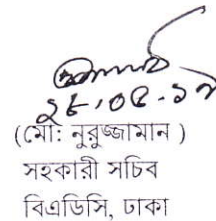 ২৮.০৫.১৭
(মো: নুরুজ্জামান )
সহকারী সচিব
বিএডিসি, ঢাকা